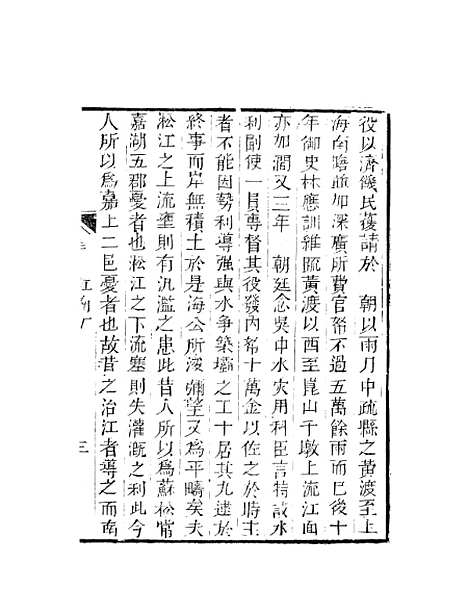 役以濟饑民獲請於　朝以兩月中疏縣之黃渡至上
海南蹌疏加深廣所費官帑不過五萬餘兩而已後十
年御史林應訓雖疏黃渡以西至崑山千墩上流江面
亦加濶又三年　朝廷念吳中水灾用科臣言特設水
利副使一員專督其役發內帑十萬金以佐之於時主
者不能因勢利導强與水爭築壩之工十居其九逮於
終事而岸無積土於是海公所濬彌望又爲平疇矣夫
淞江之上流壅則有汎濫之患此昔人所以爲蘇松常
嘉湖五郡憂者也淞江之下流塞則失灌溉之利此今
人所以爲嘉上二邑憂者也故昔之治江者導之而南
三